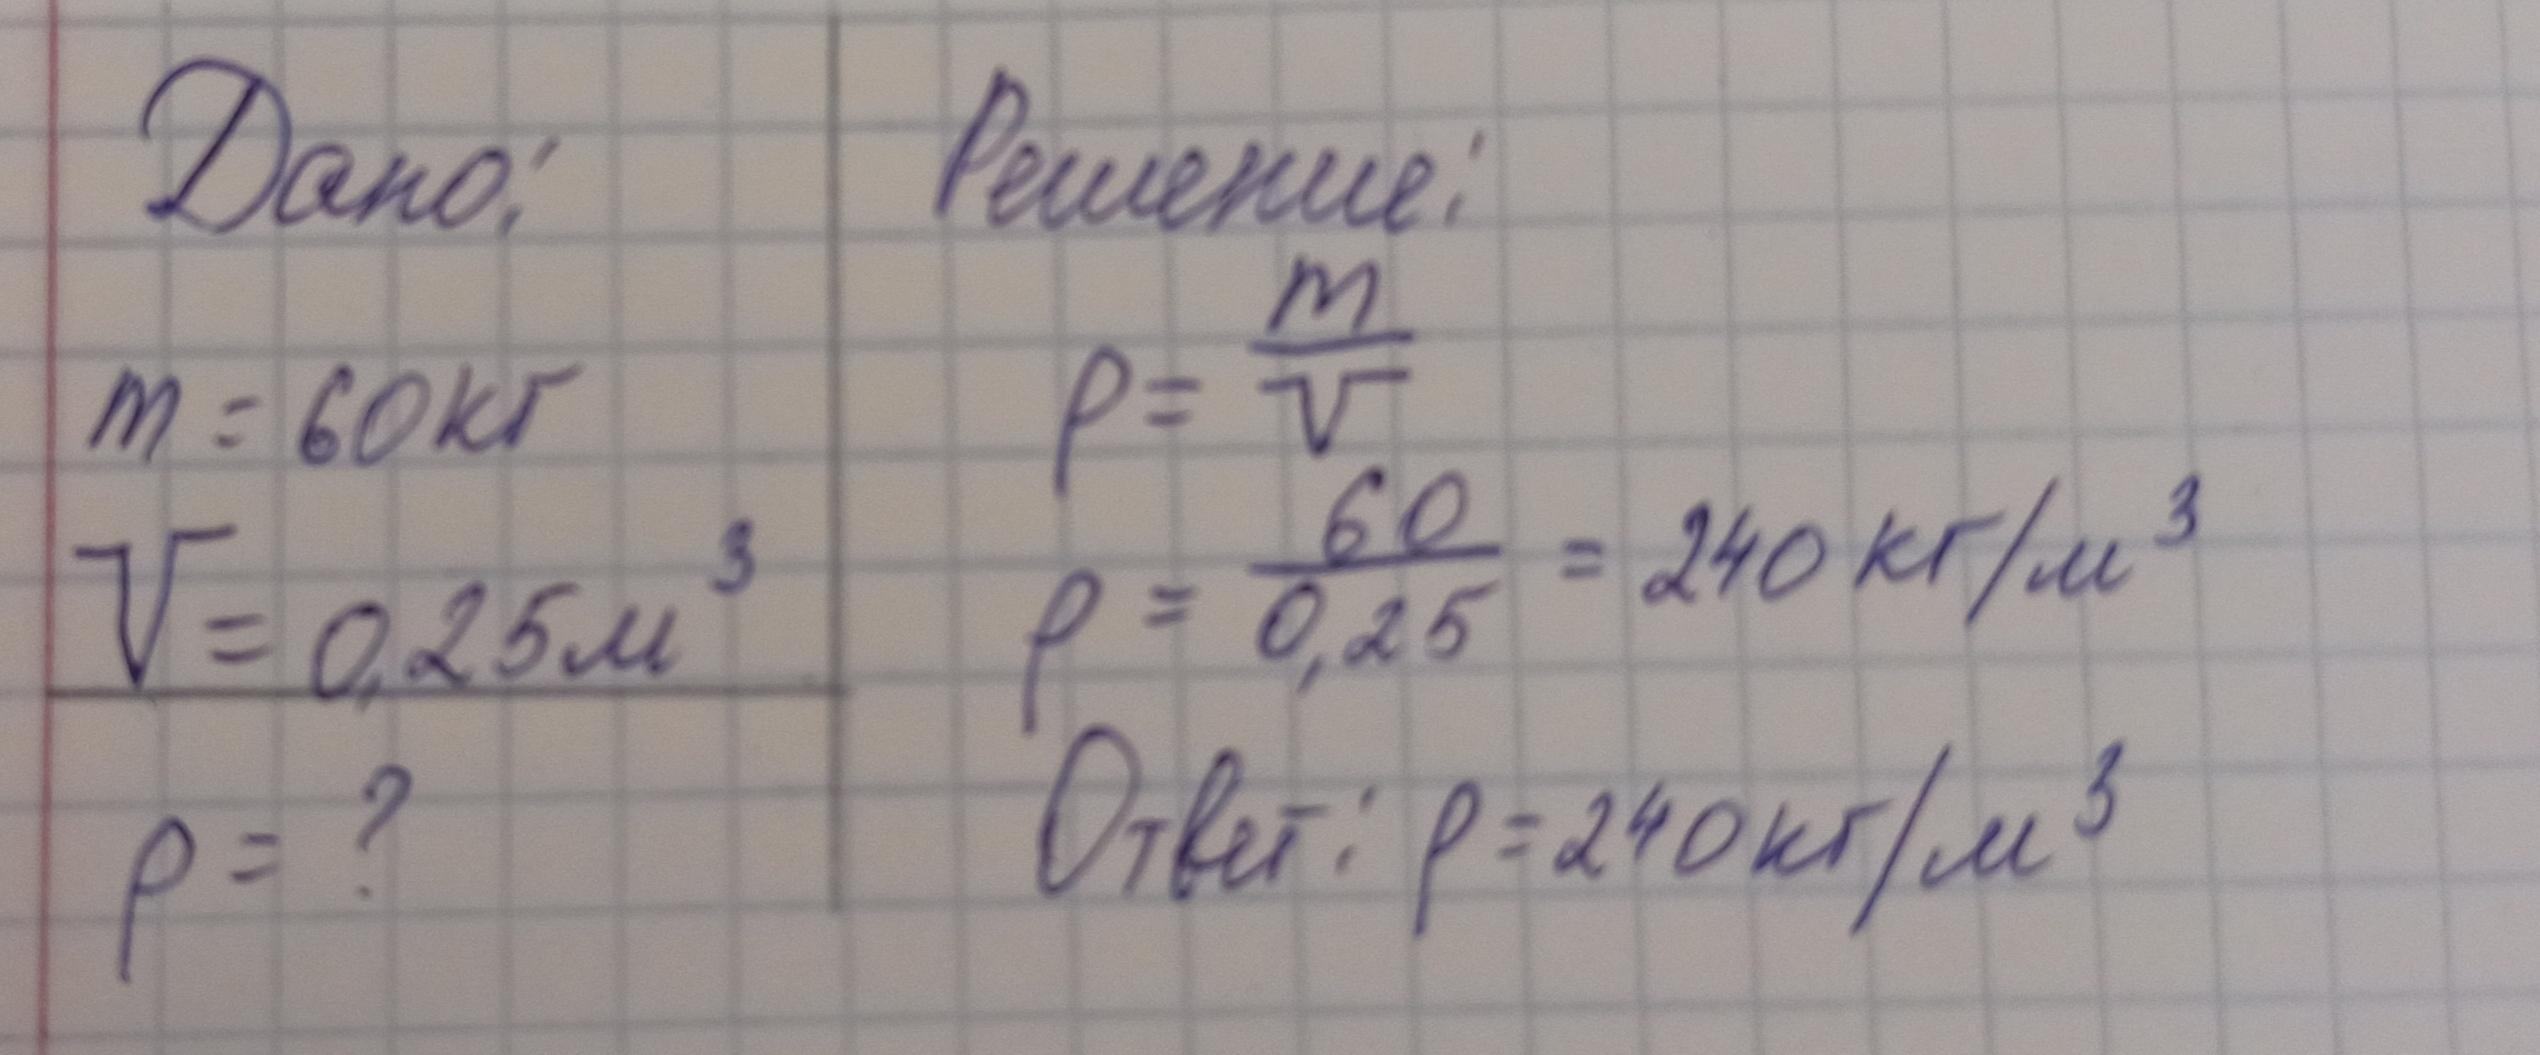 Дано:
m = 60 кг
V = 0,25 м³
ρ = ?
Решение:
ρ = m/V
ρ = 60/0,25 = 240 кг/м³
Ответ: ρ = 240 кг/м³